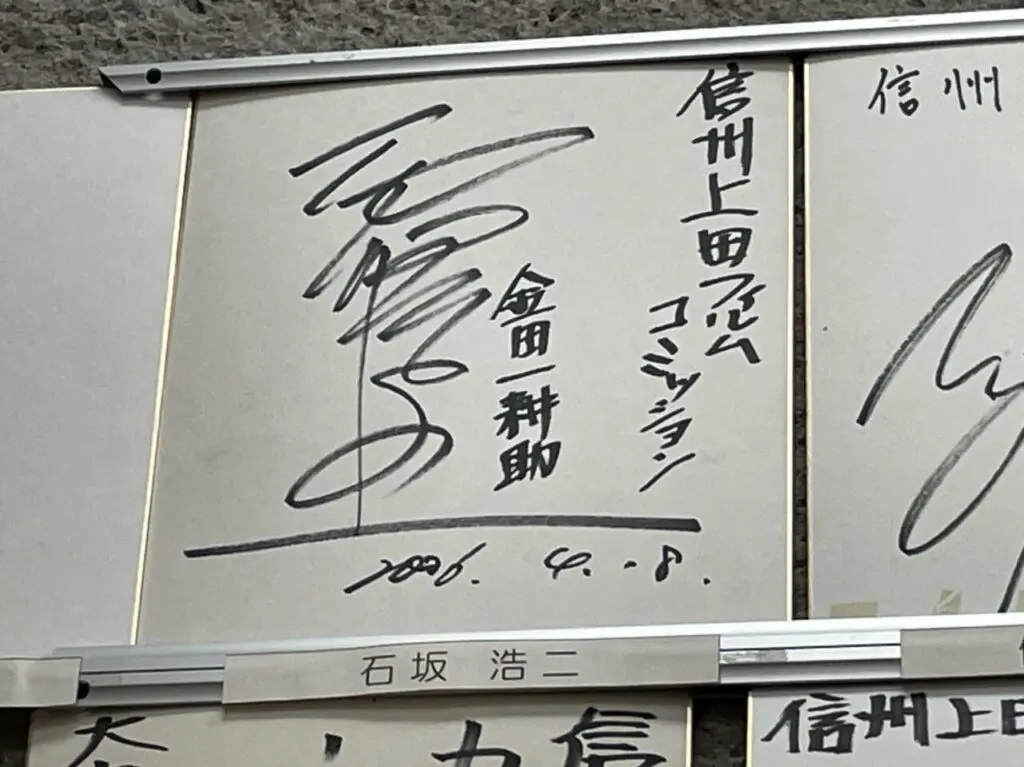 信州上田フィルム
コミッション
金田一耕助
2006. 4. 8.
石坂 浩二
信州
信
信州上田